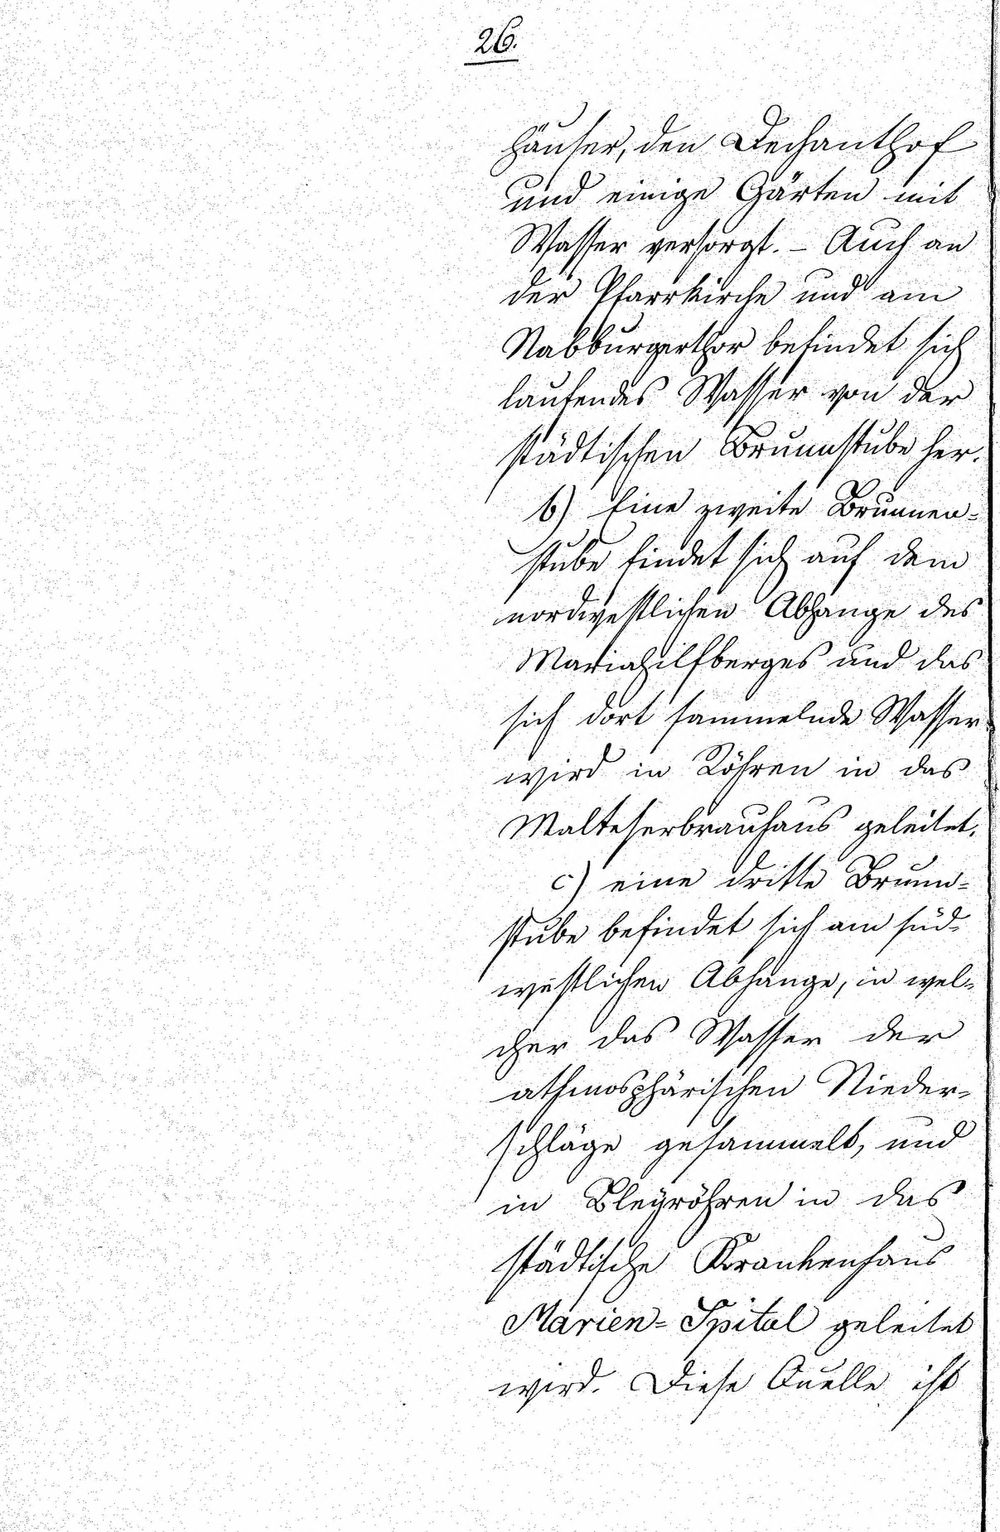 26.
häuser, den Dechanthof
und einige Gärten mit
Wasser versorgt. – Auch an
der Pfarrkirche und am
Nabburgerthor befindet sich
laufendes Wasser von der
städtischen Brunnstube her.
b) Eine zweite Brunnen-
stube findet sich auf dem
nordwestlichen Abhange des
Mariahilfberges und das
sich dort sammelnde Wasser
wird in Röhren in das
Malteserbrauhaus geleitet.
c) eine dritte Brunn-
stube befindet sich am süd-
westlichen Abhange, in wel-
cher das Wasser der
athmosphärischen Nieder-
schläge gesammelt, und
in Bleyröhren in das
städtische Krankenhaus
Marien-Spital geleitet
wird. Diese Quelle ist